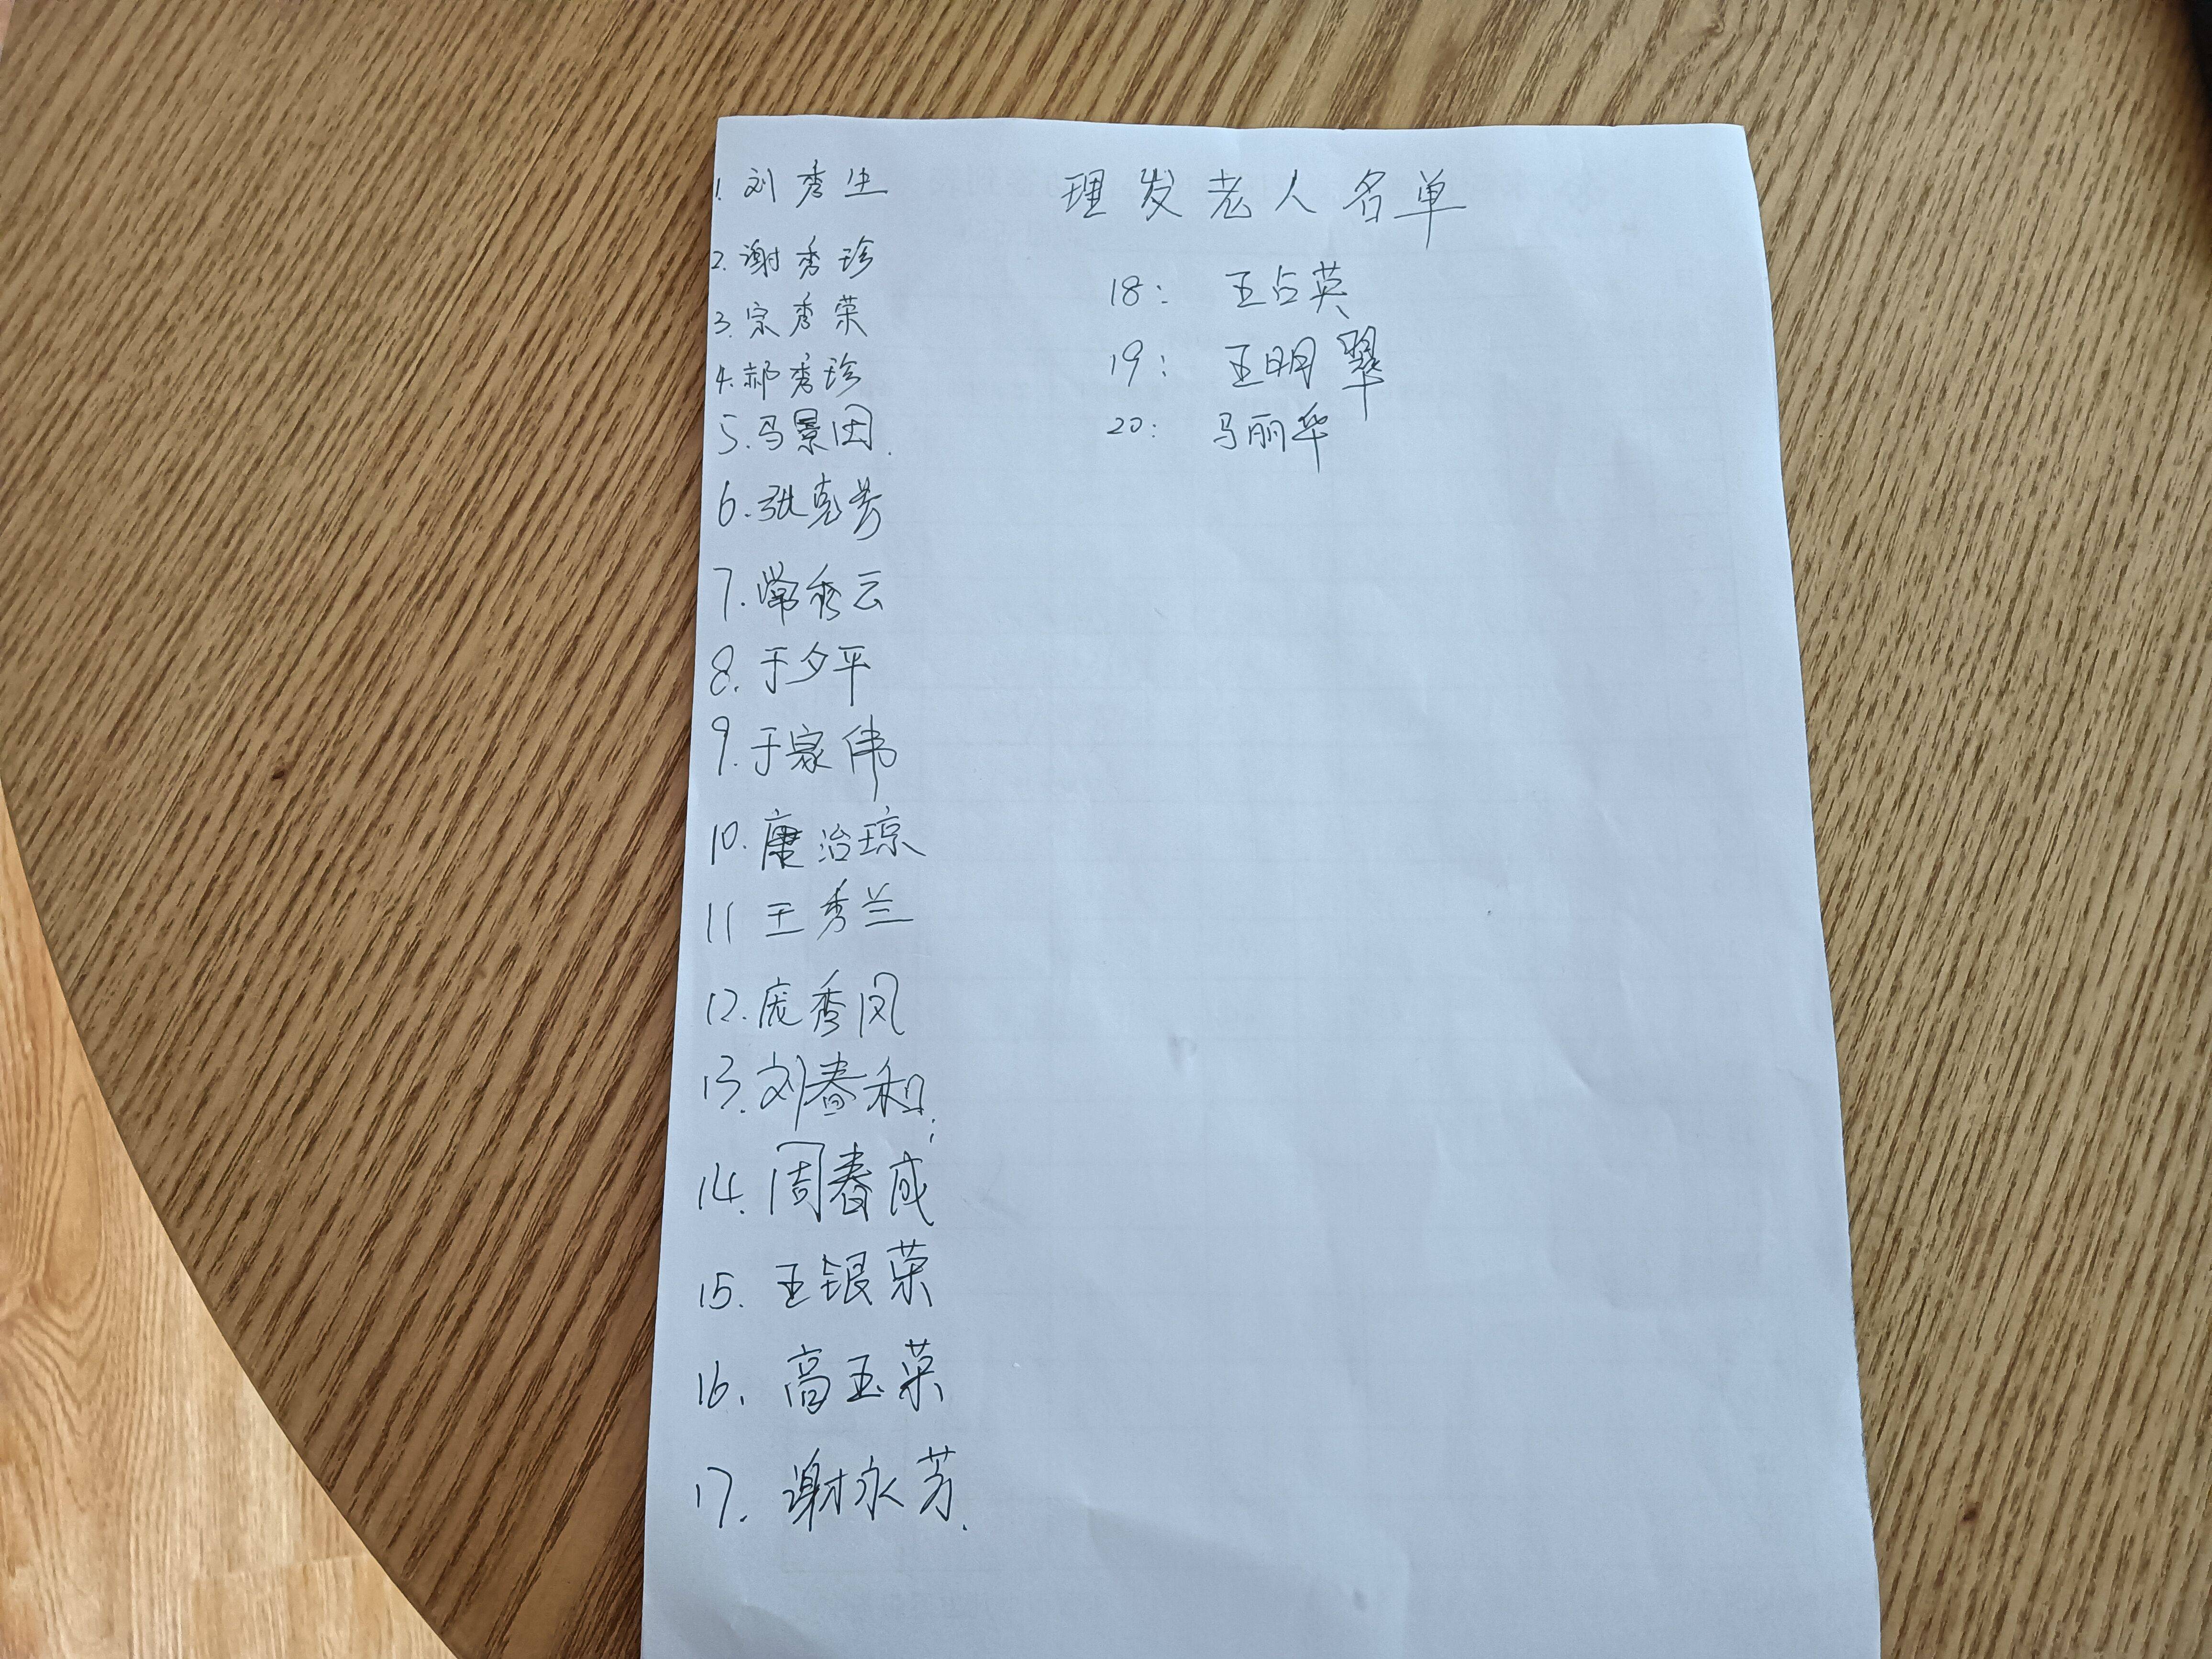 理发老人名单
1. 刘秀生
2. 谢秀珍
3. 宗秀荣
4. 郝秀珍
5. 马景田.
6. 张克芳
7. 常秀云
8. 于夕平
9. 于家伟
10. 康治琼
11 王秀兰
12. 庞秀凤
13. 刘春和
14. 周春成
15. 王银荣
16. 高玉荣
17. 谢永芳.
18: 王占英
19: 王明翠
20: 马丽华